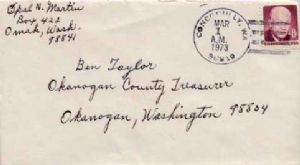 Opal N. Martin
Box 422
Omak, Wash.
98841
CONCONULLY, WA
MAR
1
A.M.
1973
98819
Ben Taylor
Okanogan County Treasurer
Okanogan, Washington 98804